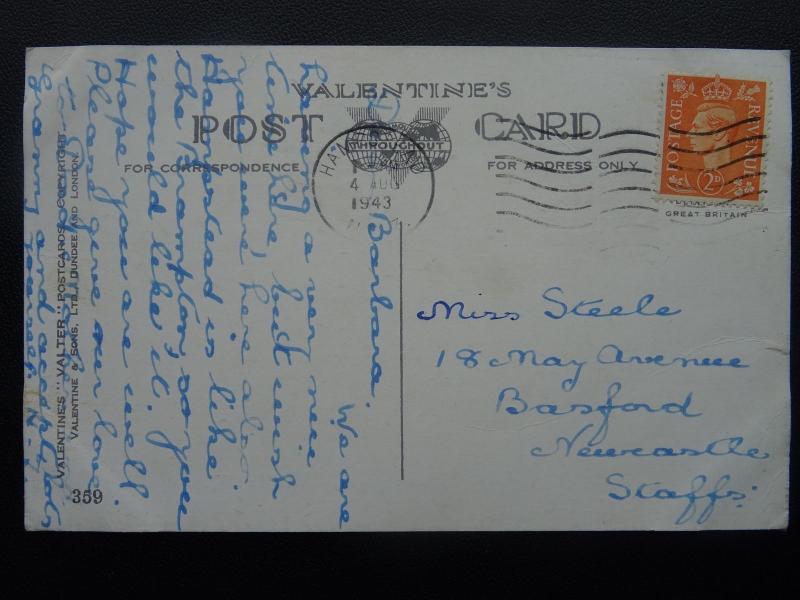 VALENTINE'S
POST CARD
THROUGHOUT
FOR CORRESPONDENCE
FOR ADDRESS ONLY
4 AUG
1943
POSTAGE REVENUE
2D
GREAT BRITAIN
Miss Steele
18 May Avenue
Basford
Newcastle
Staffs.
Barbara.
We are
having a very nice
time here, but wish
you were here also.
Hampstead is like
the Bramptons so you
would like it.
Hope you are well
Please give our love
to
Granny and
VALENTINE'S "VALTER" POSTCARDS, COPYRIGHT
VALENTINE & SONS, LTD., DUNDEE AND LONDON.
359